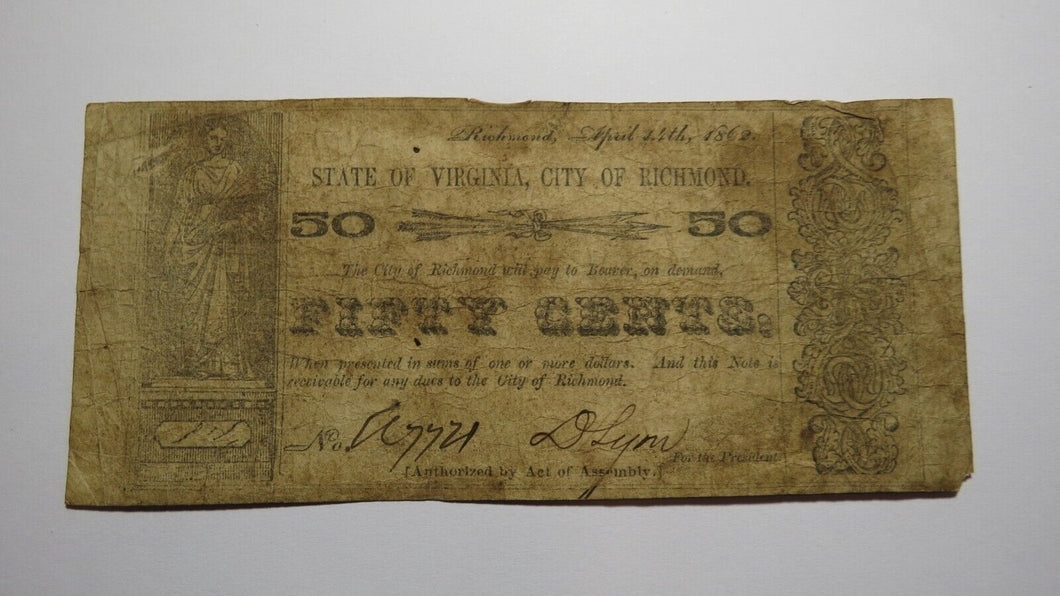 Richmond, April 14th, 1862.
STATE OF VIRGINIA, CITY OF RICHMOND.
50 50
The City of Richmond will pay to Bearer, on demand,
FIFTY CENTS,
When presented in sums of one or more dollars. And this Note is
receivable for any dues to the City of Richmond.
No. 7721 D Lyon
For the President.
[Authorized by Act of Assembly.]